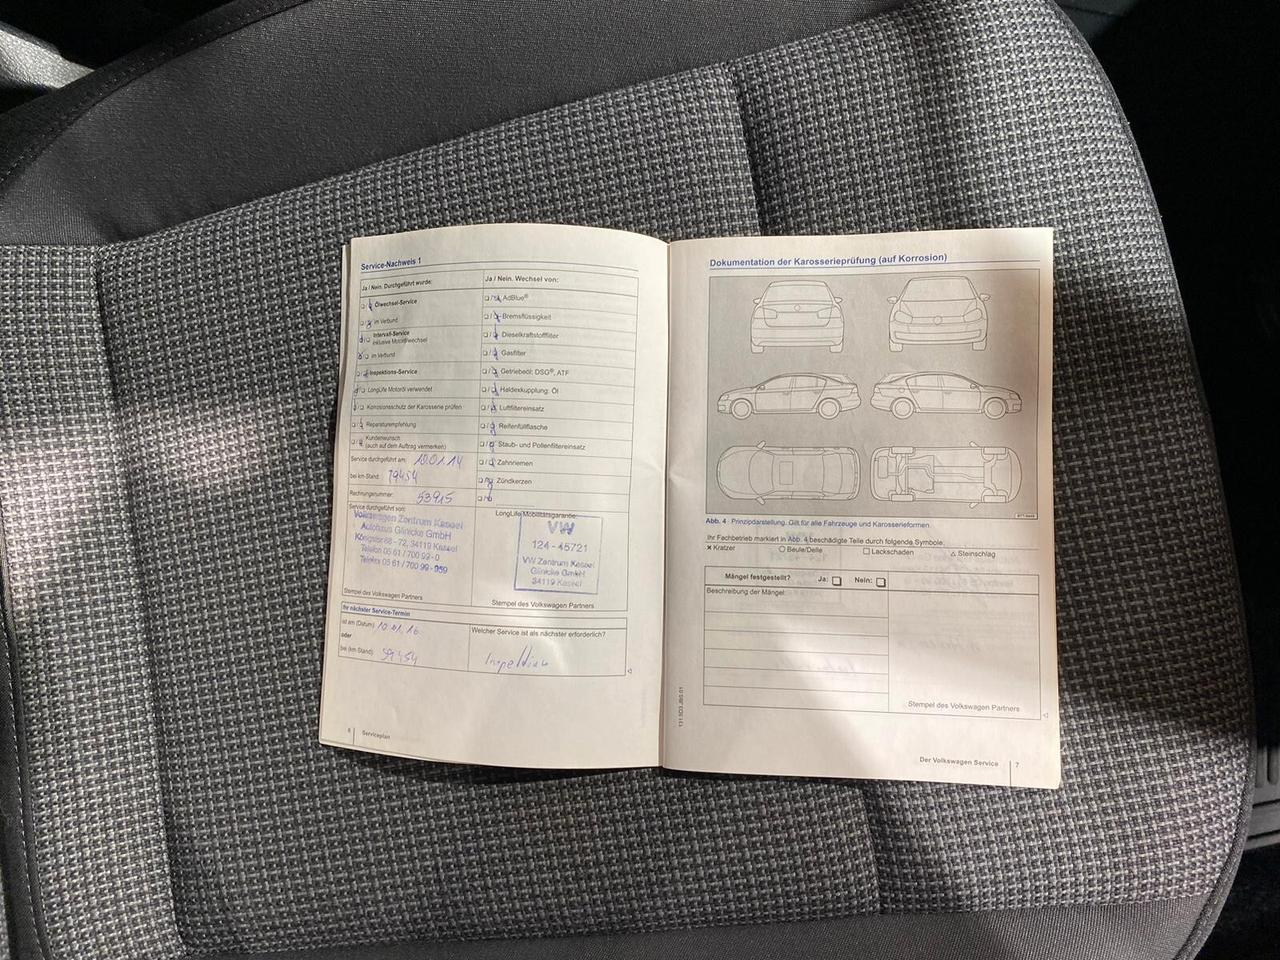 Service-Nachweis 1
Ja / Nein. Durchgeführt wurde:
Ölwechsel-Service
im Verbund
Intervall-Service
inklusive Motorölwechsel
im Verbund
Inspektions-Service
LongLife Motoröl verwendet
Korrosionsschutz der Karosserie prüfen
Reparaturempfehlung
Kundenwunsch
(auch auf dem Auftrag vermerken)
Service durchgeführt am: 10.01.14
bei km-Stand: 79454
Rechnungsnummer: 53915
Service durchgeführt von:
Volkswagen Zentrum Kassel
Autohaus Glinicke GmbH
Königstor 68 - 72, 34119 Kassel
Telefon 05 61 / 700 99 - 0
Telefax 05 61 / 700 99 - 959
Stempel des Volkswagen Partners
Ja / Nein. Wechsel von:
AdBlue®
Bremsflüssigkeit
Dieselkraftstofffilter
Gasfilter
Getriebeöl: DSG®, ATF
Haldexkupplung: Öl
Luftfiltereinsatz
Reifenfüllflasche
Staub- und Pollenfiltereinsatz
Zahnriemen
Zündkerzen
LongLife Mobilitätsgarantie:
VW
124 - 45721
VW Zentrum Kassel
Glinicke GmbH
34119 Kassel
Stempel des Volkswagen Partners
Ihr nächster Service-Termin
ist am (Datum)
oder
bei (km-Stand):
Welcher Service ist als nächster erforderlich?
6 Serviceplan
Dokumentation der Karosserieprüfung (auf Korrosion)
Abb. 4 Prinzipdarstellung. Gilt für alle Fahrzeuge und Karosserieformen.
Ihr Fachbetrieb markiert in Abb. 4 beschädigte Teile durch folgende Symbole.
× Kratzer ○ Beule/Delle □ Lackschaden △ Steinschlag
Mängel festgestellt? Ja: □ Nein: □
Beschreibung der Mängel:
Stempel des Volkswagen Partners
Der Volkswagen Service 7